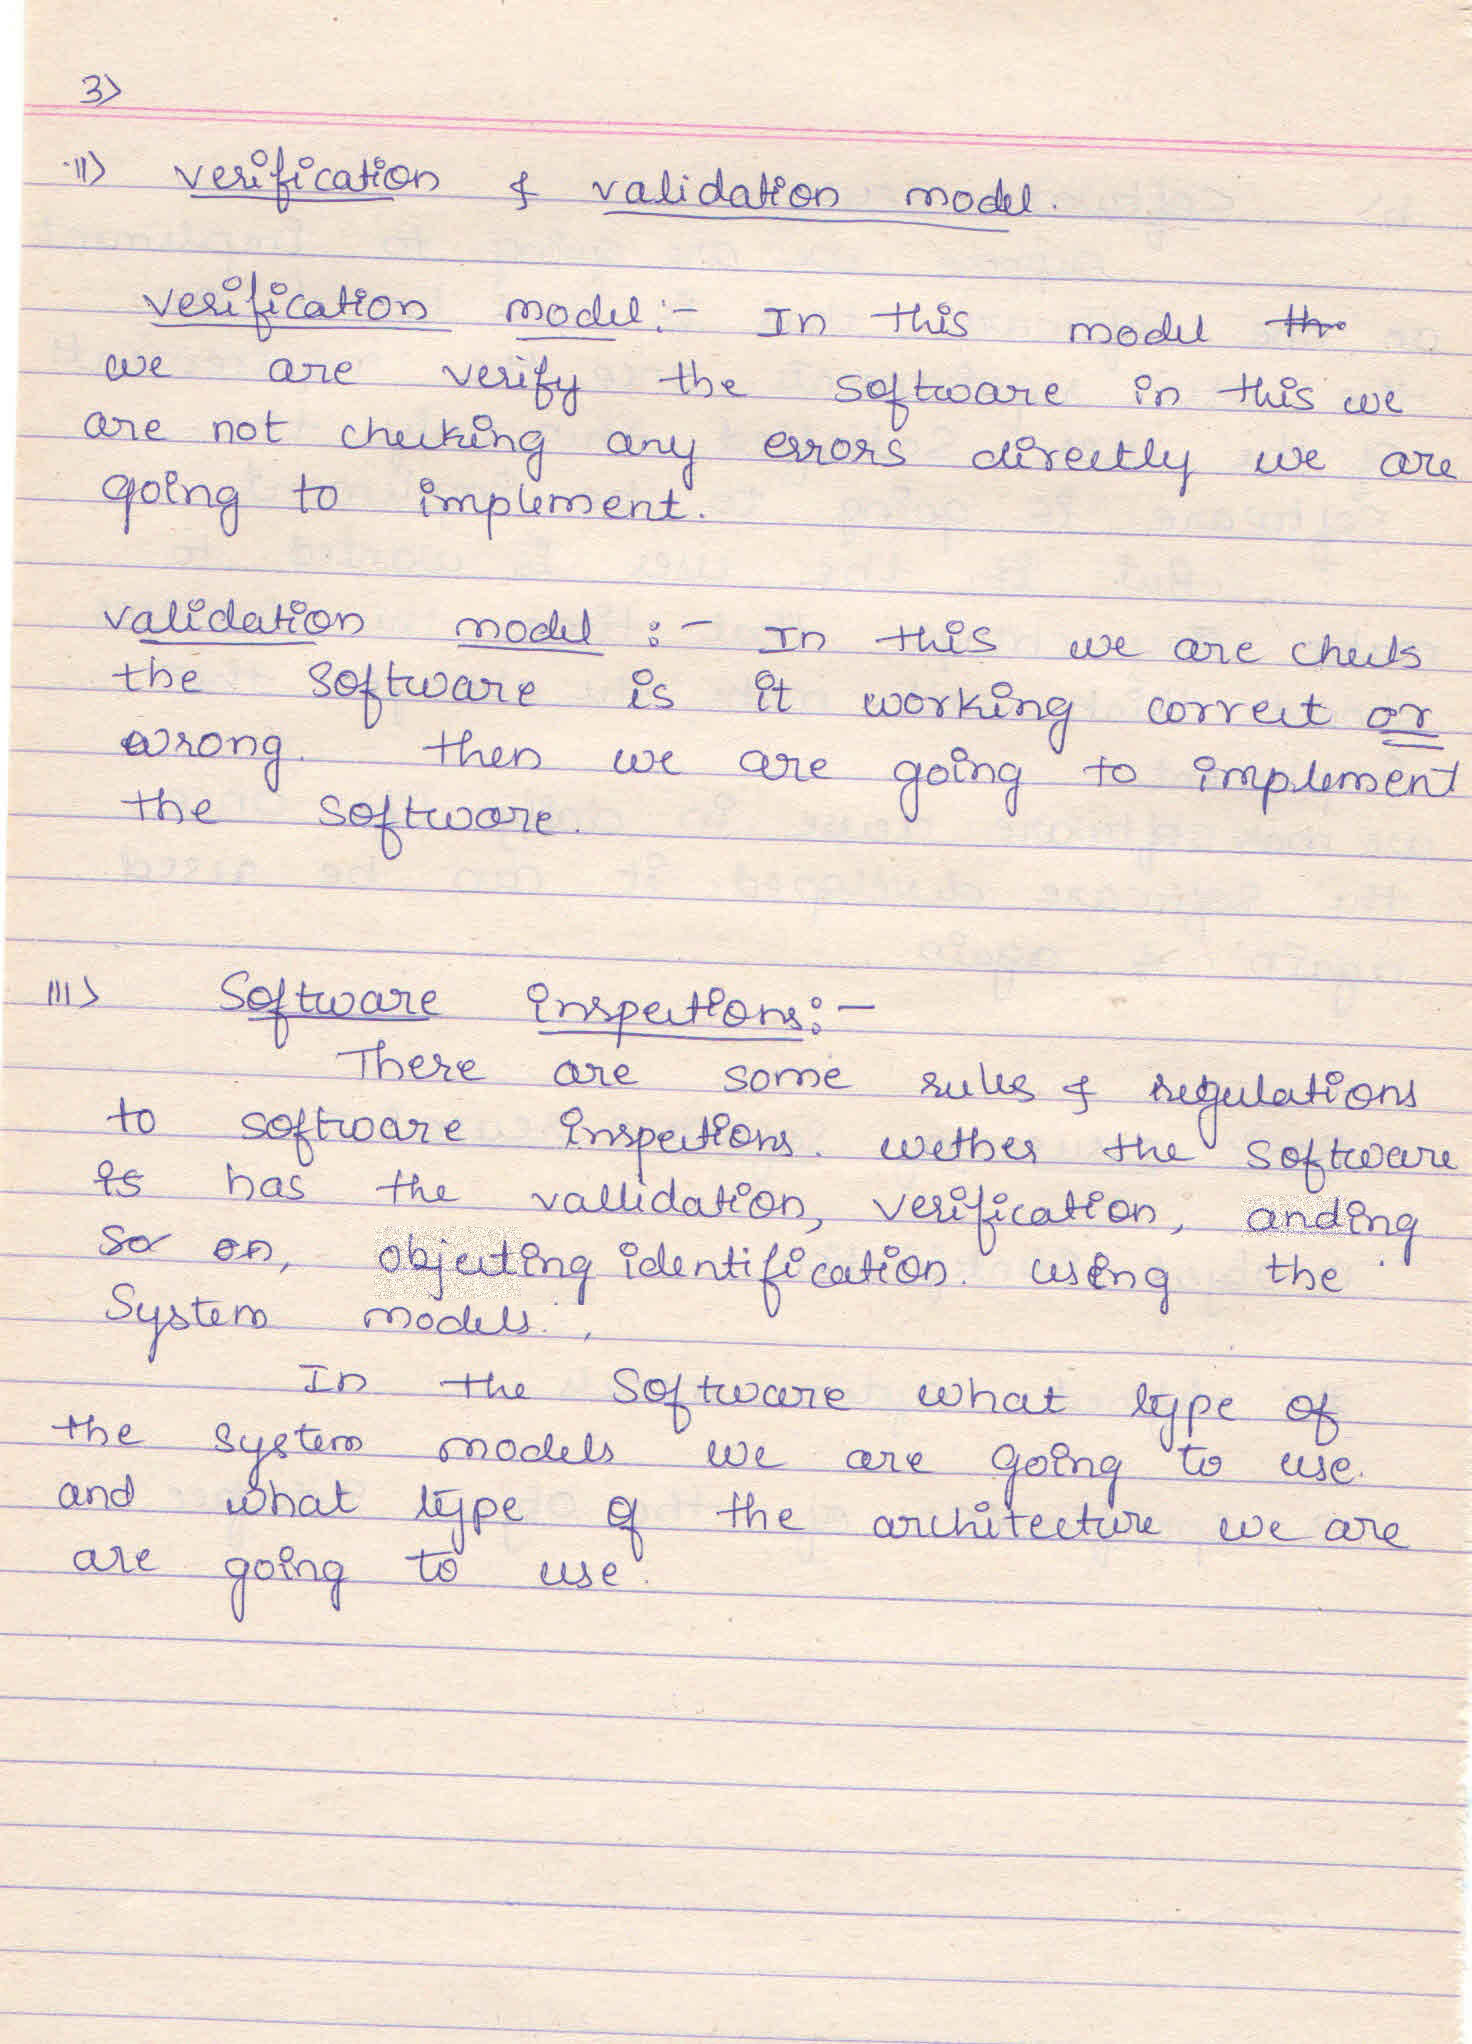 3>
ii> verification & validation model.
verification model:- In this model
we are verify the software in this we
are not checking any errors directly we are
going to implement.
validation model :- In this we are check
the software is it working correct or
wrong. then we are going to implement
the software.
III> Software inspections:-
There are some rules & regulations
to software inspections. wether the software
is has the vallidation, verification, anding
so on, objecting identification. using the
System models.
In the software what type of
the system models we are going to use.
and what type of the architecture we are
are going to use.